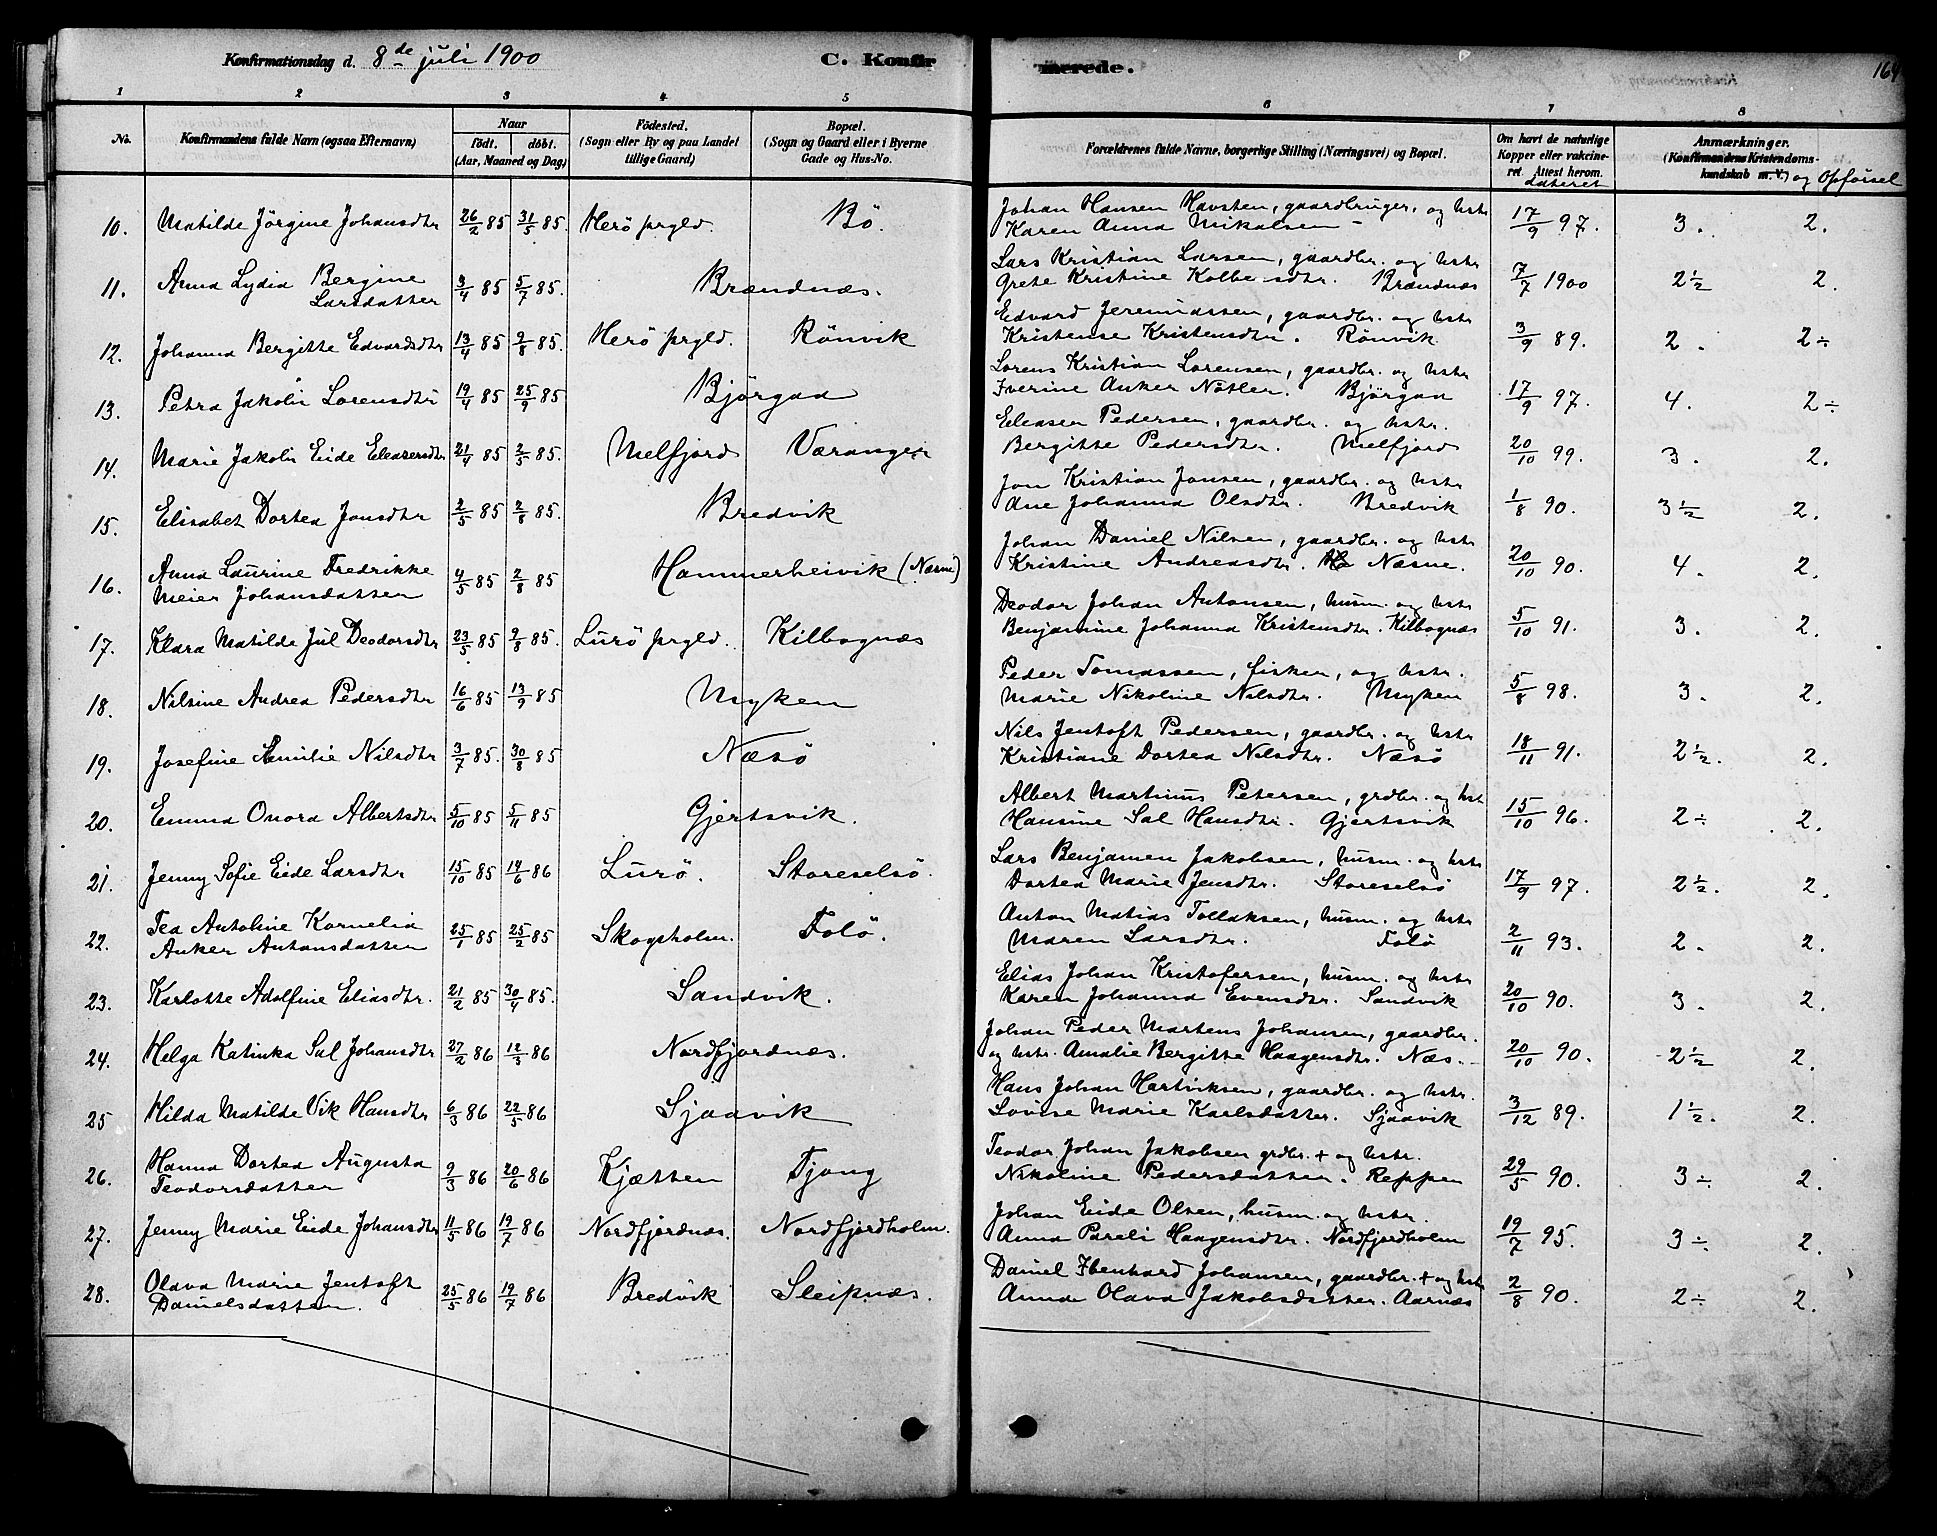 Konfirmationsdag d. 8de juli 1900 C. Konfirmerede. 164
1 2 3 4 5 6 7 8
No. Konfirmandens fulde Navn (ogsaa Efternavn) Naar født. døbt. (Aar, Maaned og Dag) Födested. (Sogn eller By og paa Landet tillige Gaard) Bopæl. (Sogn og Gaard eller i Byerne Gade og Hus-No. Forældrenes fulde Navne, borgerlige Stilling (Næringsvei) og Bopæl. Om havt de naturlige Kopper eller vakcineret. Attest herom. dateret Anmærkninger. (Konfirmandens Kristendomskundskab m. V.) og Opførsel
10. Matilde Jörgine Johansdtr 26/2 85 31/5 85. Herö prgld. Bö. Johan Hansen Havsten, gaardbruger, og hstr
Karen Anna Mikalsen - 17/9 97. 3. 2.
11. Anna Lydia Bergine
Larsdatter 3/4 85 5/7 85. Brændnæs. Lars Kristian Larsen, gaardbr. og hstr
Grete Kristine Kolbe-sdtr. Brændnæs 7/7 1900 2½ 2.
12. Johanna Bergitte Edvardsdtr 13/4 85 9/8 85. Herö prgld. Rönvik Edvard Jeremiassen, gaardbr. og hstr
Kristense Kristensdtr. Rönvik 3/9 89. 2. 2÷
13. Petra Jakobi Lorensdtr 19/4 85 25/9 85 Björgaa Lorens Kristian Lorensen, gaardbr. og hstr
Iverine Anker Nötler. Björgaa 17/9 97. 4. 2÷
14. Marie Jakobi Eide Eleasersdtr 21/4 85 2/5 85. Melfjord Væranger Eleaser Pedersen, gaardbr. og hstr.
Bergitte Pedersdtr. Melfjord 20/10 99. 3. 2.
15. Elisabet Dortea Jonsdtr 2/5 85 2/8 85. Bredvik Jon Kristian Jonsen, gaardbr. og hstr
Ane Johanna Olsdtr. Bredvik 1/8 90. 3½ 2.
16. Anna Laurine Fredrikke
Meier Johansdatter 4/5 85 2/8 85 Hammerheivik (Næsne) Johan Daniel Nilsen, gaardbr. og hstr
Kristine Andreasdtr. Næsne. 20/10 90. 4. 2.
17. Klara Matilde Jul Deodorsdtr 23/5 85 9/8 85. Lurö prgld. Kilbognæs Deodor Johan Antonsen, husm. og hstr
Benjamine Johanna Kristensdtr. Kilbognæs 5/10 91. 3. 2.
18. Nilsine Andrea Pedersdtr 16/6 85 13/9 85 Myken Peder Tomassen, fisker, og hstr.
Marie Nikoline Nilsdtr. Myken 5/8 98. 3. 2.
19. Josefine Emilie Nilsdtr 3/7 85. 30/8 85 Næsö Nils Jentoft Pedersen, gaardbr. og hstr
Kristiane Dortea Nilsdtr. Næsö 18/11 91. 2½. 2.
20. Emma Onora Albertsdtr 5/10 85 5/11 85 Gjertsvik. Albert Martinus Petersen, grdbr. og hst
Hansine Sal Hansdtr. Gjertsvik 15/10 96. 2÷ 2.
21. Jenny Sofie Eide Larsdtr 15/10 85 14/6 86 Lurö. Storeselsö. Lars Benjamen Jakobsen, husm. og hstr
Dortea Marie Jensdtr. Storeselsö 17/9 97. 2½. 2.
22. Tea Antoline Kornelia
Anker Antonsdatter 25/1 85 25/2 85 Skogsholm. Tolö. Anton Matias Tollaksen, husm. og hstr
Maren Larsdtr. Tolö 2/11 93. 2. 2.
23. Karlotte Adolfine Eliasdtr. 21/2 85 30/4 85. Sandvik. Elias Johan Kristofersen, husm. og hstr
Karen Johanna Evensdtr. Sandvik 20/10 90. 3. 2.
24. Helga Katinka Sal Johansdtr 27/2 86 12/3 86 Nordfjordnæs. Johan Peder Martens Johansen, gaardbr.
og hstr. Amalie Bergitte Haagensdtr. Næs. 20/10 90. 2½ 2.
25 Hilda Matilde Vik Hansdtr 6/3 86 22/5 86 Sjaavik Hans Johan Hartviksen, gaardbr. og hstr.
Lovise Marie Karlsdatter. Sjaavik 3/12 89. 1½. 2.
26. Hanna Dortea Augusta
Teodorsdatter 9/3 86 20/6 86 Kjætten Tjong Teodor Johan Jakobsen grdbr. + og hstr.
Nikoline Pedersdatter. Reppen 29/5 90. 3÷ 2.
27. Jenny Marie Eide Johansdtr 11/5 86 19/7 86 Nordfjordnæs. Nordfjordholm. Johan Eide Olsen, husm. og hstr.
Anna Pareli Haagensdtr. Nordfjordholm 19/7 95. 3÷. 2.
28. Olava Marie Jentoft
Danielsdatter. 25/5 86 19/7 86 Bredvik Sleipnæs. Daniel Ibenhard Johansen, gaardbr. + og hstr
Anna Olava Jakobsdatter. Aarnæs 2/8 90. 2÷ 2.